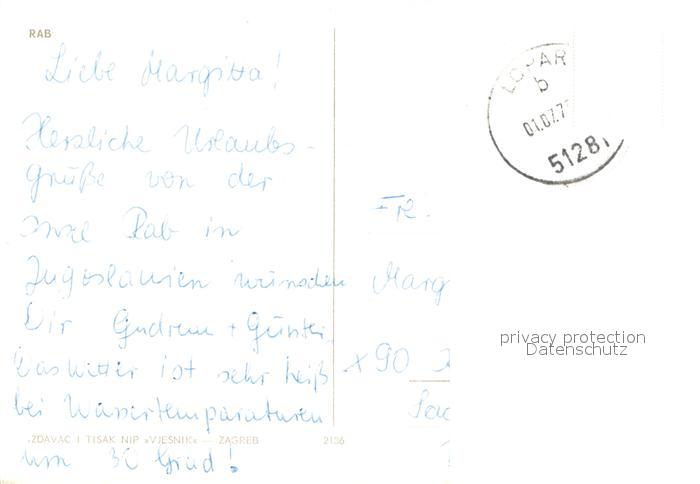 RAB
Liebe Margitta!
Herzliche Urlaubs-
grüße von der
Insel Rab in
Jugoslawien wünschen
Dir Gudrun + Günter.
Das Wetter ist sehr heiß
bei Wassertemperaturen
um 30 Grad!
IZDAVAČ I TISAK NIP »VJESNIK« — ZAGREB 2136
LOPAR
b
01.07.7
51281
Fr.
Marg
X90
privacy protection
Datenschutz